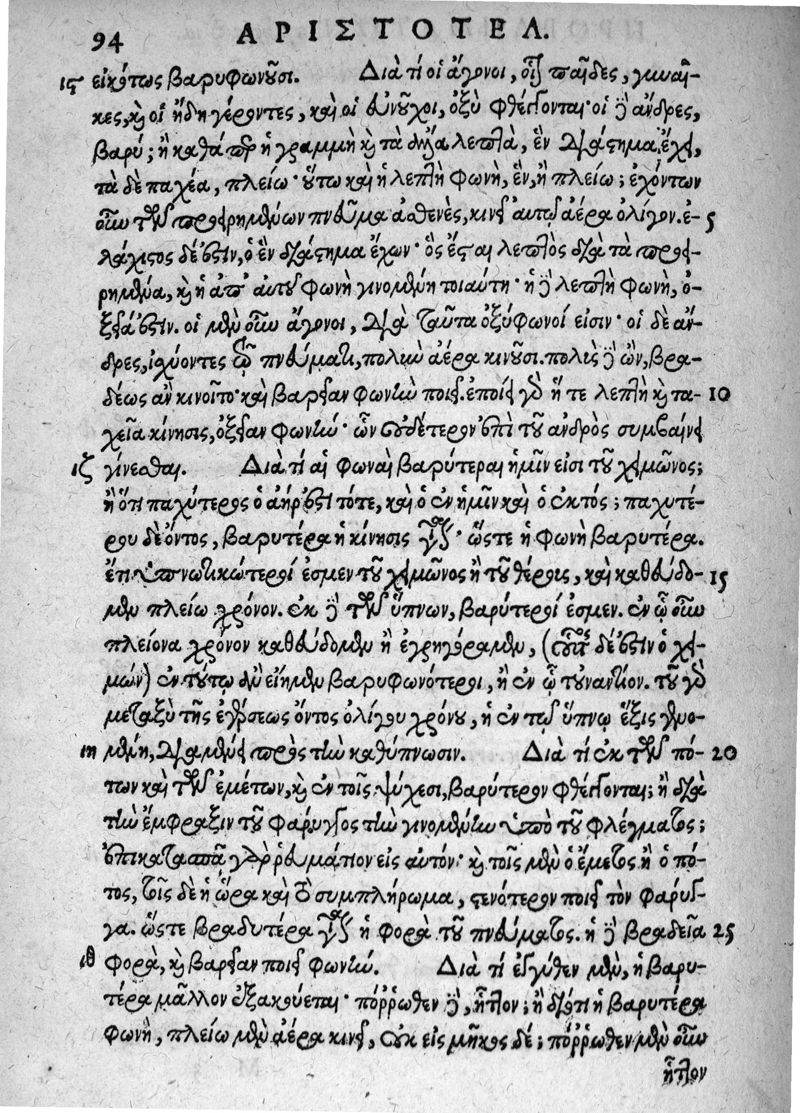 94 ΑΡΙΣΤΟΤΕΛ.
ις εἰκότως βαρυφωνοῦσι. Διὰ τί οἱ ἄγονοι, οἷον παῖδες, γυναῖ-
κες, καὶ οἱ ἤδη γέροντες, καὶ οἱ εὐνοῦχοι, ὀξὺ φθέγγονται· οἱ δὲ ἄνδρες,
βαρύ; ἢ καθάπερ ἡ γραμμὴ καὶ τὰ ἄλλα λεπτὰ, ἓν διάστημα ἔχει,
τὰ δὲ παχέα, πλείω· οὕτω καὶ ἡ λεπτὴ φωνὴ, ἓν, ἢ πλείω; ἐχόντων
οὖν τῶν προειρημένων πνεῦμα ἀσθενὲς, κινεῖ αὐτῷ ἀέρα ὀλίγον. ἐ- 5
λάχιστος δέ ἐστιν, ὁ ἓν διάστημα ἔχων· ὃς ἔσται λεπτὸς διὰ τὰ προει-
ρημένα, καὶ ἡ ἀπ' αὐτοῦ φωνὴ γινομένη τοιαύτη· ἡ δὲ λεπτὴ φωνὴ, ὀ-
ξεῖά ἐστιν. οἱ μὲν οὖν ἄγονοι, διὰ ταῦτα ὀξύφωνοί εἰσιν· οἱ δὲ ἄν-
δρες, ἰσχύοντες τῷ πνεύματι, πολὺν ἀέρα κινοῦσι. πολὺς δὲ ὢν, βρα-
δέως ἂν κινοῖτο· καὶ βαρεῖαν φωνὴν ποιεῖ. ἐποίει γὰρ ἥ τε λεπτὴ καὶ τα- 10
χεῖα κίνησις, ὀξεῖαν φωνήν· ὧν οὐδέτερον ἐπὶ τοῦ ἀνδρὸς συμβαίνει
ιζ γίνεσθαι. Διὰ τί αἱ φωναὶ βαρύτεραι ἡμῖν εἰσι τοῦ χειμῶνος;
ἢ ὅτι παχύτερος ὁ ἀήρ ἐστι τότε, καὶ ὁ ἐν ἡμῖν καὶ ὁ ἐκτός; παχυτέ-
ρου δὲ ὄντος, βαρυτέρα ἡ κίνησις γίνεται· ὥστε ἡ φωνὴ βαρυτέρα.
ἔτι ὑπνωτικώτεροί ἐσμεν τοῦ χειμῶνος ἢ τοῦ θέρους, καὶ καθεύδο- 15
μεν πλείω χρόνον. ἐκ δὲ τῶν ὕπνων, βαρύτεροί ἐσμεν. ἐν ᾧ οὖν
πλείονα χρόνον καθεύδομεν ἢ ἐγρηγόραμεν, (οὗτος δέ ἐστιν ὁ χει-
μών) ἐν τούτῳ ἂν εἴημεν βαρυφωνότεροι, ἢ ἐν ᾧ τὐναντίον. τοῦ γὰρ
μεταξὺ τῆς ἐγέρσεως ὄντος ὀλίγου χρόνου, ἡ ἐν τῷ ὕπνῳ ἕξις γενο-
ιη μένη, διαμένει πρὸς τὴν καθύπνωσιν. Διὰ τί ἐκ τῶν πό- 20
των καὶ τῶν ἐμέτων, καὶ ἐν τοῖς ψύχεσι, βαρύτερον φθέγγονται; ἢ διὰ
τὴν ἔμφραξιν τοῦ φάρυγγος τὴν γινομένην ὑπὸ τοῦ φλέγματος;
ἐπικατασπᾷ γὰρ ῥευμάτιον εἰς αὐτόν· καὶ τοῖς μὲν ὁ ἔμετος ἢ ὁ πό-
τος, τοῖς δὲ ἡ ὥρα καὶ τὸ συμπλήρωμα, στενότερον ποιεῖ τὸν φάρυγ-
γα. ὥστε βραδυτέρα γίνεται ἡ φορὰ τοῦ πνεύματος. ἡ δὲ βραδεῖα 25
ιθ φορὰ, καὶ βαρεῖαν ποιεῖ φωνήν. Διὰ τί ἐγγύθεν μὲν, ἡ βαρυ-
τέρα μᾶλλον ἐξακούεται· πόῤῥωθεν δὲ, ἧττον; ἢ διότι ἡ βαρυτέρα
φωνὴ, πλείω μὲν ἀέρα κινεῖ, οὐκ εἰς μῆκος δέ; πόῤῥωθεν μὲν οὖν
ἧττον